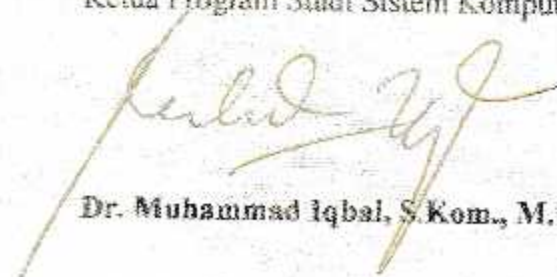 Ketua Program Studi Sistem Kompu
Dr. Muhammad Iqbal, S.Kom., M.